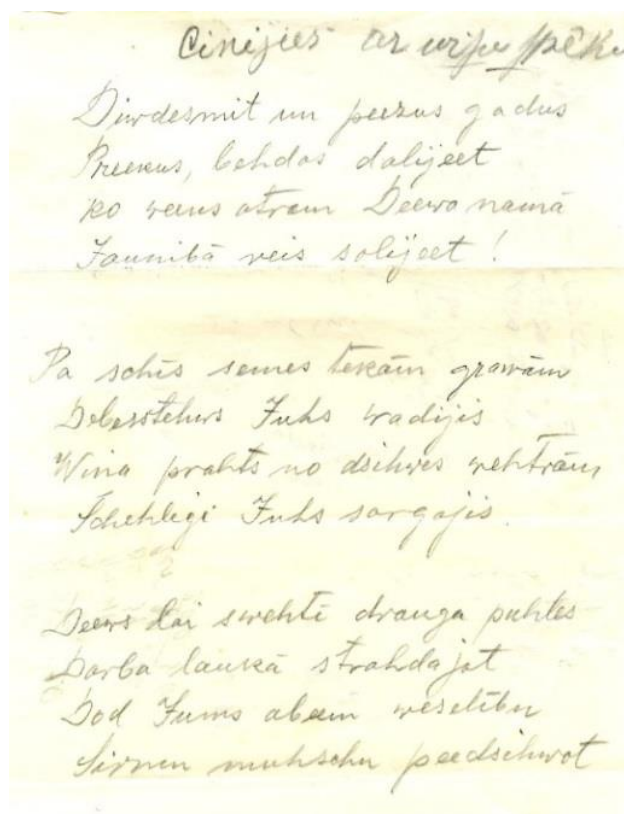 Cinījies ar wiņu spēku
Diwdesmit un peezus gadus
Preekus, behdas dalijeet
ko weens otram Deewa namā
Jaunibā reis solijeet!
Pa schīs semes tekām grawām
Debesstehws Juhs wadijis
Wina prahts no dsihwes wehtrām
Schehligi Juhs sargajis.
Deews lai swehtī drauga puhles
Darba laukā strahdajot
Dod Jums abeem weselibu
Sirmu muhschu peedsihwot